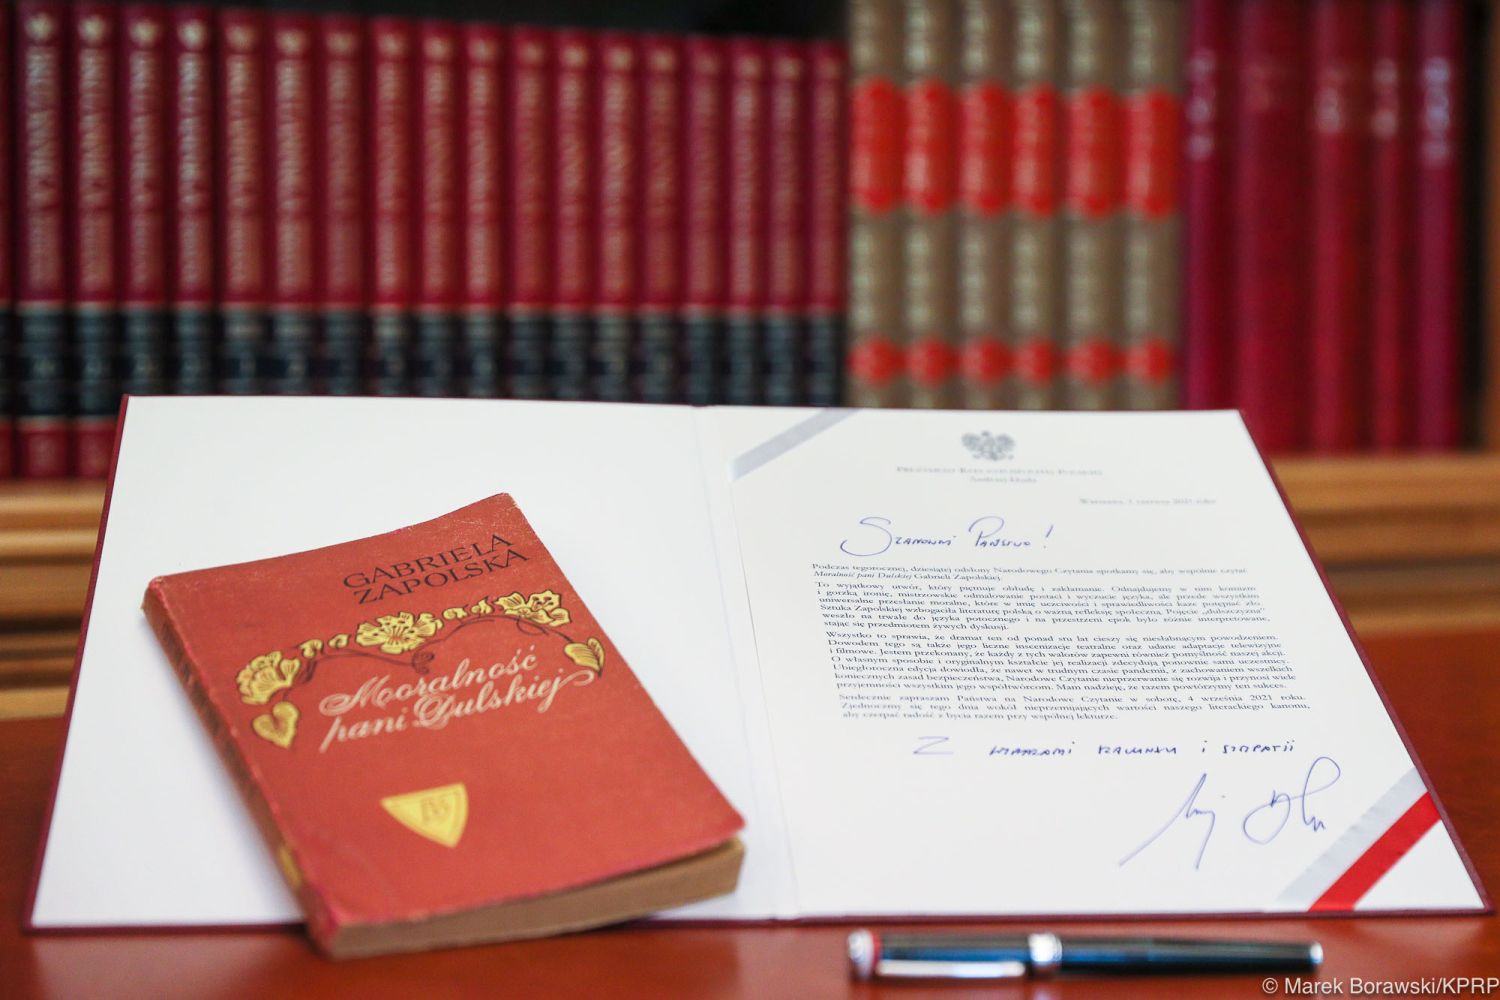 GABRIELA
ZAPOLSKA
Moralność
pani Dulskiej
Prezydent Rzeczypospolitej Polskiej
Andrzej Duda
Warszawa, 1 czerwca 2021 roku
Szanowni Państwo!
Podczas tegorocznej, dziesiątej odsłony Narodowego Czytania spotkamy się, aby wspólnie czytać
Moralność pani Dulskiej Gabrieli Zapolskiej.
To wyjątkowy utwór, który piętnuje obłudę i zakłamanie. Odnajdujemy w nim komizm
i gorzką ironię, mistrzowskie odmalowanie postaci i wyczucie języka, ale przede wszystkim
uniwersalne przesłanie moralne, które w imię uczciwości i sprawiedliwości każe potępiać zło.
Sztuka Zapolskiej wzbogaciła literaturę polską o ważną refleksję społeczną. Pojęcie „dulszczyzna”
weszło na trwałe do języka potocznego i na przestrzeni epok było różnie interpretowane,
stając się przedmiotem żywych dyskusji.
Wszystko to sprawia, że dramat ten od ponad stu lat cieszy się niesłabnącym powodzeniem.
Dowodem tego są także jego liczne inscenizacje teatralne oraz udane adaptacje telewizyjne
i filmowe. Jestem przekonany, że każdy z tych walorów zapewni również pomyślność naszej akcji.
O własnym sposobie i oryginalnym kształcie jej realizacji zdecydują ponownie sami uczestnicy.
Ubiegłoroczna edycja dowiodła, że nawet w trudnym czasie pandemii, z zachowaniem wszelkich
koniecznych zasad bezpieczeństwa, Narodowe Czytanie nieprzerwanie się rozwija i przynosi wiele
przyjemności wszystkim jego współtwórcom. Mam nadzieję, że razem powtórzymy ten sukces.
Serdecznie zapraszam Państwa na Narodowe Czytanie w sobotę, 4 września 2021 roku.
Zjednoczmy się tego dnia wokół nieprzemijających wartości naszego literackiego kanonu,
aby czerpać radość z bycia razem przy wspólnej lekturze.
Z wyrazami szacunku i sympatii
© Marek Borawski/KPRP